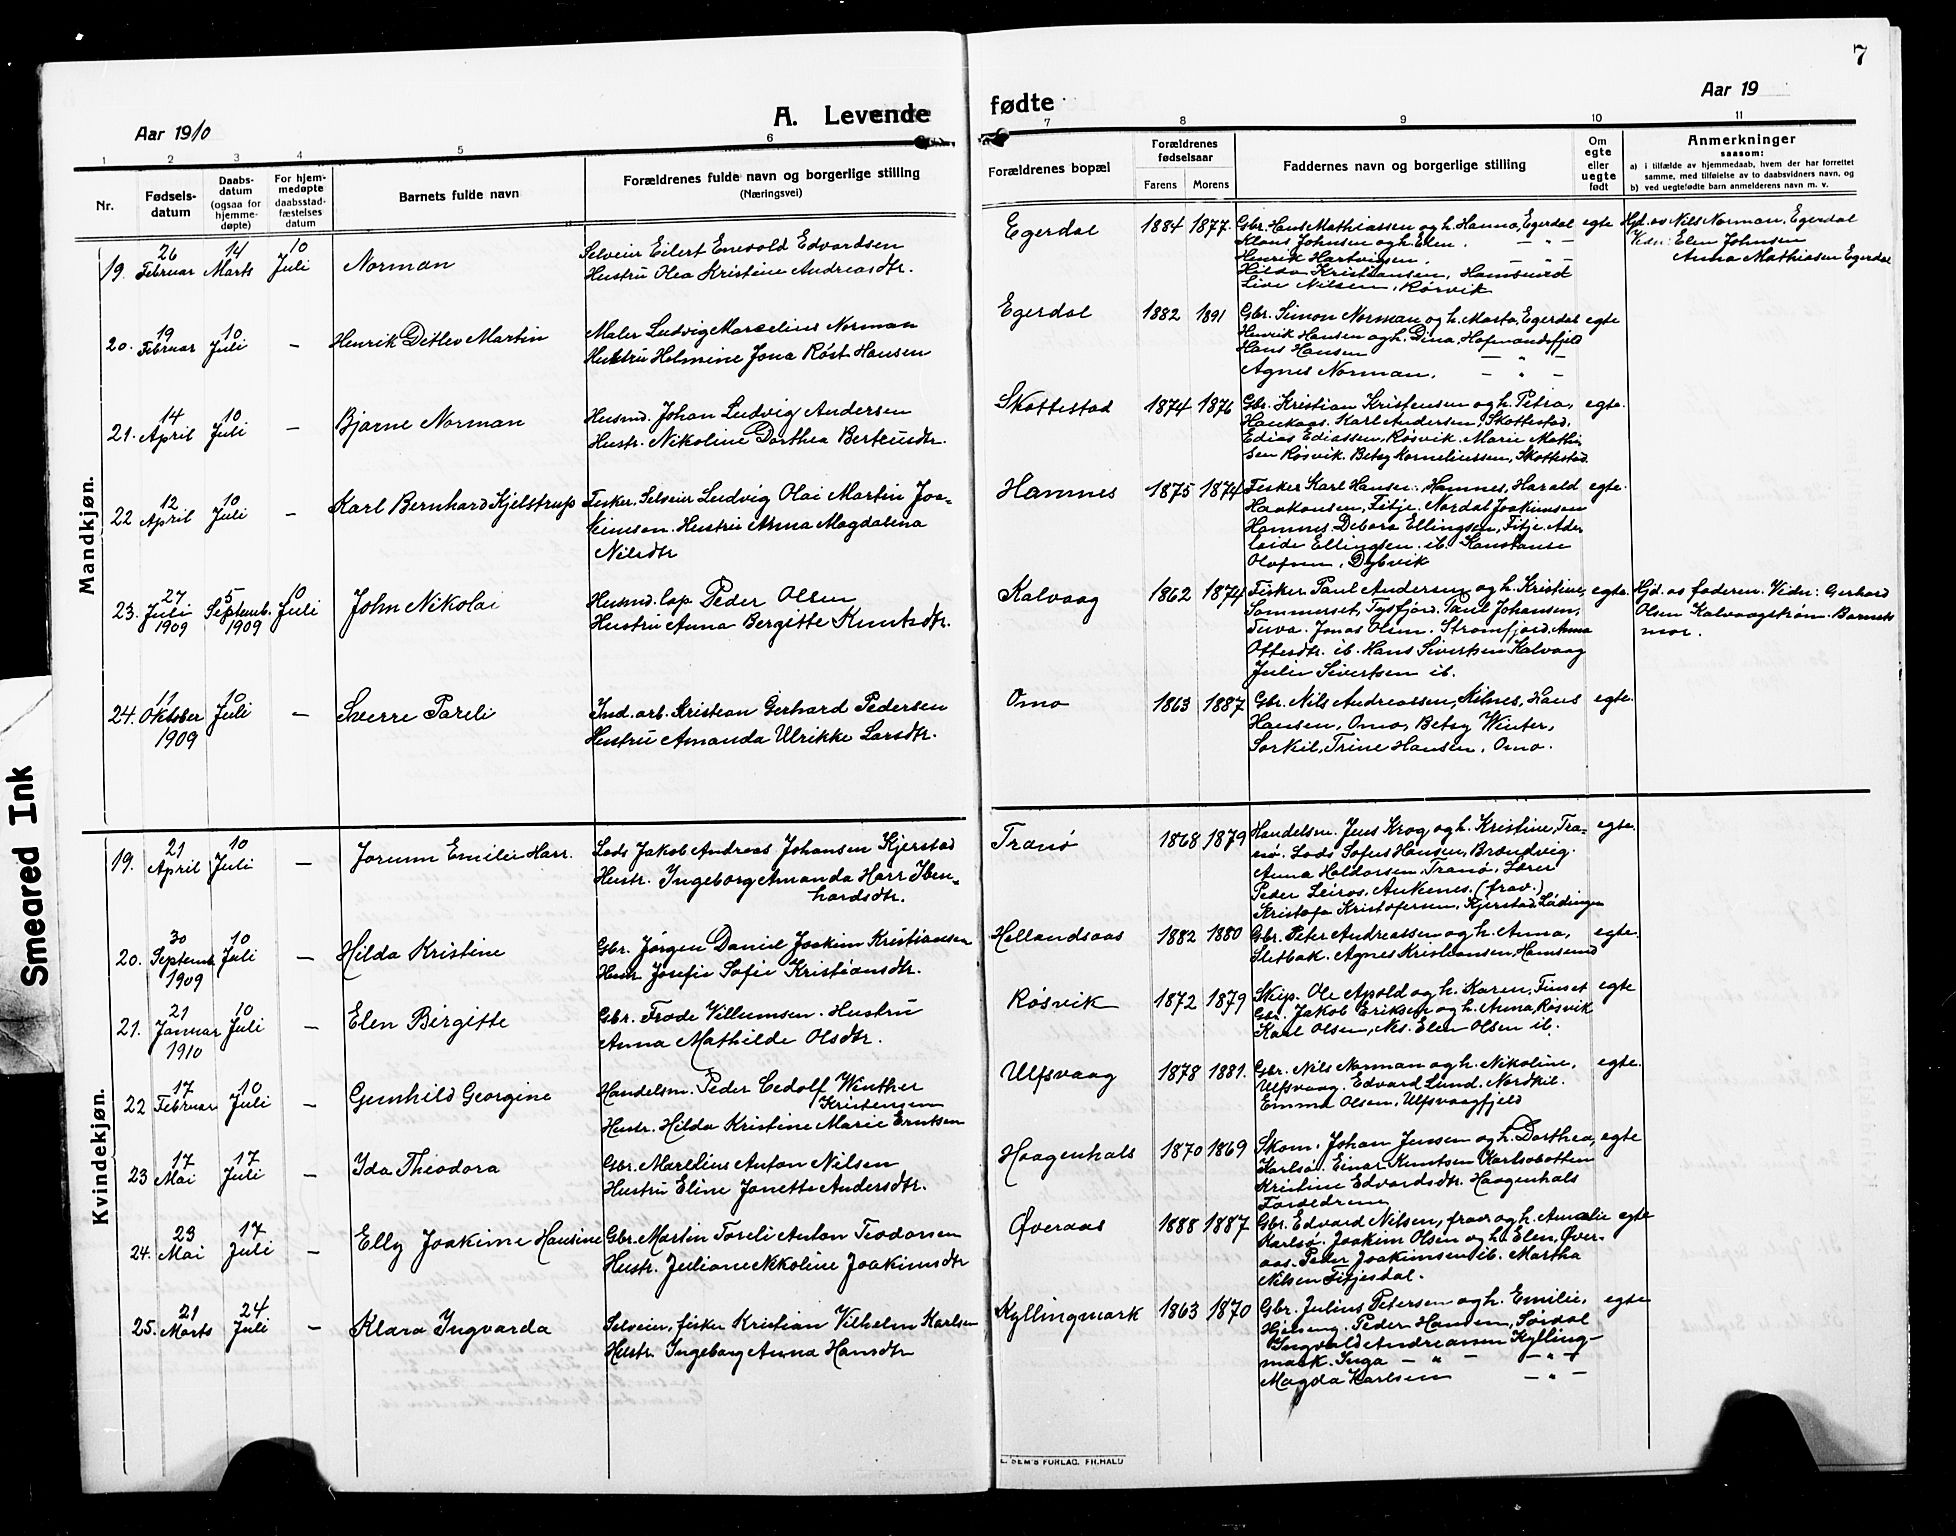 7
A. Levende fødte
Aar 1910
Aar 19
1 2 3 4 5 6 7 8 9 10 11
Nr.
Fødsels-
datum
Daabs-
datum
(ogsaa for
hjemme-
døpte)
For hjem-
medøpte
daabsstad-
fæstelses
datum
Barnets fulde navn
Forældrenes fulde navn og borgerlige stilling
(Næringsvei)
Forældrenes bopæl
Forældrenes
fødselsaar
Farens Morens
Faddernes navn og borgerlige stilling
Om
egte
eller
uegte
født
Anmerkninger
saasom:
a) i tilfælde av hjemmedaab, hvem der har forrettet
samme, med tilføielse av to daabsvidners navn, og
b) ved uegtefødte barn anmelderens navn m. v.
Mandkjøn.
19. 26 Februar 14 Marts 10 Juli Norman
Selveier Eilert Enevold Edvardsen
Hustru Olea Kristine Andreasdtr.
Egerdal 1884 1877.
Gbr. Hans Mathiassen og h. Hanna, Egerdal
Klaus Johnsen og h. Elen. — " —
Henrik Hartvigsen. — " —
Hilda Kristiansen, Hamsund
Live Nilsen, Rørvik
egte
Hjd. av Nils Norman, Egerdal
Vidn: Elen Johnsen
Anna Mathiasen Egerdal
20. 19 Februar 10 Juli — Henrik Ditlev Martin
Maler Ludvig Marselius Norman
Hustru Helmine Jona Røst Hansen
Egerdal 1882 1891
Gbr. Simon Norman og h. Marta, Egerdal
Henrik Hansen og h. Dina, Hofmandsfjeld
Hans Hansen — " —
Agnes Norman. — " —
egte
21. 14 April 10 Juli — Bjarne Norman
Husmd. Johan Ludvig Andersen
Hustr. Nikoline Dorthea Berteusdtr.
Skottestad 1874 1876
Gbr. Kristian Kristensen og h. Petra,
Haukaas. Karl Andersen, Skottestad,
Edias Ediassen, Røsvik. Marie Mathi
sen Røsvik. Betsy Korneliussen, Skottestad
egte.
22 12 April 10 Juli — Karl Bernhard Kjelstrup
Fisker, Selveier Ludvig Olai Martin Joa-
kimsen. Hustru Anna Magdalena
Nilsdtr
Hamnes 1875 1874
Fisker Karl Hansen, Hamnes, Harald
Haakonsen, Fitje. Nordal Joakimsen
Hamnes. Debora Ellingsen, Fitje. Ade
laide Ellingsen ib. Konstanse
Olofsen, Dybvik
egte.
23. 27 Juli 1909 5 Septemb. 1909 10 Juli John Nikolai
Husmd. lap Peder Olsen
Hustru Anna Bergitte Knutsdtr.
Kalvaag 1862 1874
Fisker Paul Andersen og h. Kristine,
Sommerset, Tysfjord. Paul Johansen,
Tuva. Jonas Olsen. Strømfjord. Anna
Ottesdtr. ib. Hans Sivertsen Kalvaag
Julie Sivertsen ib.
egte.
Hjd. av faderen. Vidn: Gerhard
Olsen Kalvaagstrøm. Barnets
mor.
24. 11 Oktober 1909 10 Juli — Sverre Pareli
Ind. arb. Kristian Gerhard Pedersen
Hustru Amanda Ulrikke Larsdtr.
Omo 1863 1887
Gbr. Nils Andreassen, Nilnes, Hans
Hansen, Omo, Betsy Winter,
Sorkil, Trine Hansen, Omo.
egte.
Kvindekjøn.
19. 21 April 10 Juli — Jorunn Emilie Harr.
Lods Jakob Andreas Johansen Kjerstad
Hustr. Ingeborg Amanda Harr Iben-
hardsdtr.
Tranø 1868 1879
Handelsm. Jens Krog og h. Kristine, Tra-
nø. Lods Sofus Hansen, Brændvig.
Anna Haldorsen, Tranø. Lærer
Peder Leiros, Ankenes. (frav.)
Kristofa Kristofersen, Kjerstad, Lødingen
egte.
20. 30 Septemb 1909 10 Juli — Hilda Kristine
Gbr. Jørgen Daniel Joakim Kristiansen
Hustr. Josefie Sofie Kristiansdtr.
Hellandsaas 1882 1880
Gbr. Peter Andreassen og h. Anna,
Sletbak. Agnes Kristiansen, Hamsund
egte.
21. 21 Januar 1910 10 Juli — Elen Birgitte
Gbr. Frode Villumsen. Hustru
Anna Mathilde Olsdtr.
Røsvik 1872 1879
Skip. Ole Apold og h. Karen, Finset
Gbr. Jakob Eriksen og h. Anna, Røsvik
Karl Olsen, Nes. Elen Olsen ib.
egte
22 17 Februar 10 Juli — Gunhild Georgine
Handelsm. Peder Cedolf Winther
Kristensen
Hustr. Hilda Kristine Marie Erntsen
Ulfsvaag 1878 1881.
Gbr. Nils Norman og h. Nikoline,
Ulfsvaag. Edvard Lund. Nordkil.
Emma Olsen, Ulfsvaagfjeld
egte.
23 17 Mai 17 Juli — Ida Theodora
Gbr. Marelius Anton Nilsen
Hustru Eline Jonette Andersdtr.
Haagenhals 1870 1869
Skom. Johan Jensen og h. Dorthea,
Karlsø. Einar Knutsen Karlsobotten
Kristine Edvardsdtr. Haagenhals
Forældrene
egte
24. 23 Mai 17 Juli — Elly Joakime Hansine
Gbr. Martin Toreli Anton Teodorsen
Hustr. Juliane Nikoline Joakimsdtr
Øveraas 1888 1887
Gbr. Edvard Nilsen, frav og h. Amalie
Karlsø. Joakim Olsen og h. Elen, Øver-
aas. Peder Joakimsen ib. Martha
Nilsen Fitjesdal.
egte
25. 21 Marts 24 Juli — Klara Ingvarda
Selveier, fisker Kristian Vilhelm Karlsen
Hustr. Ingeborg Anna Hansdtr
Kyllingmark 1863 1870
Gbr. Julius Petersen og h. Emilie,
Hjelseng. Peder Hansen, Sørdal
Ingvald Andreassen Kylling-
mark. Inga — " — — " —
Magda Karlsen — " —
egte
E. SEM'S FORLAG, FR.HALD
Smeared Ink